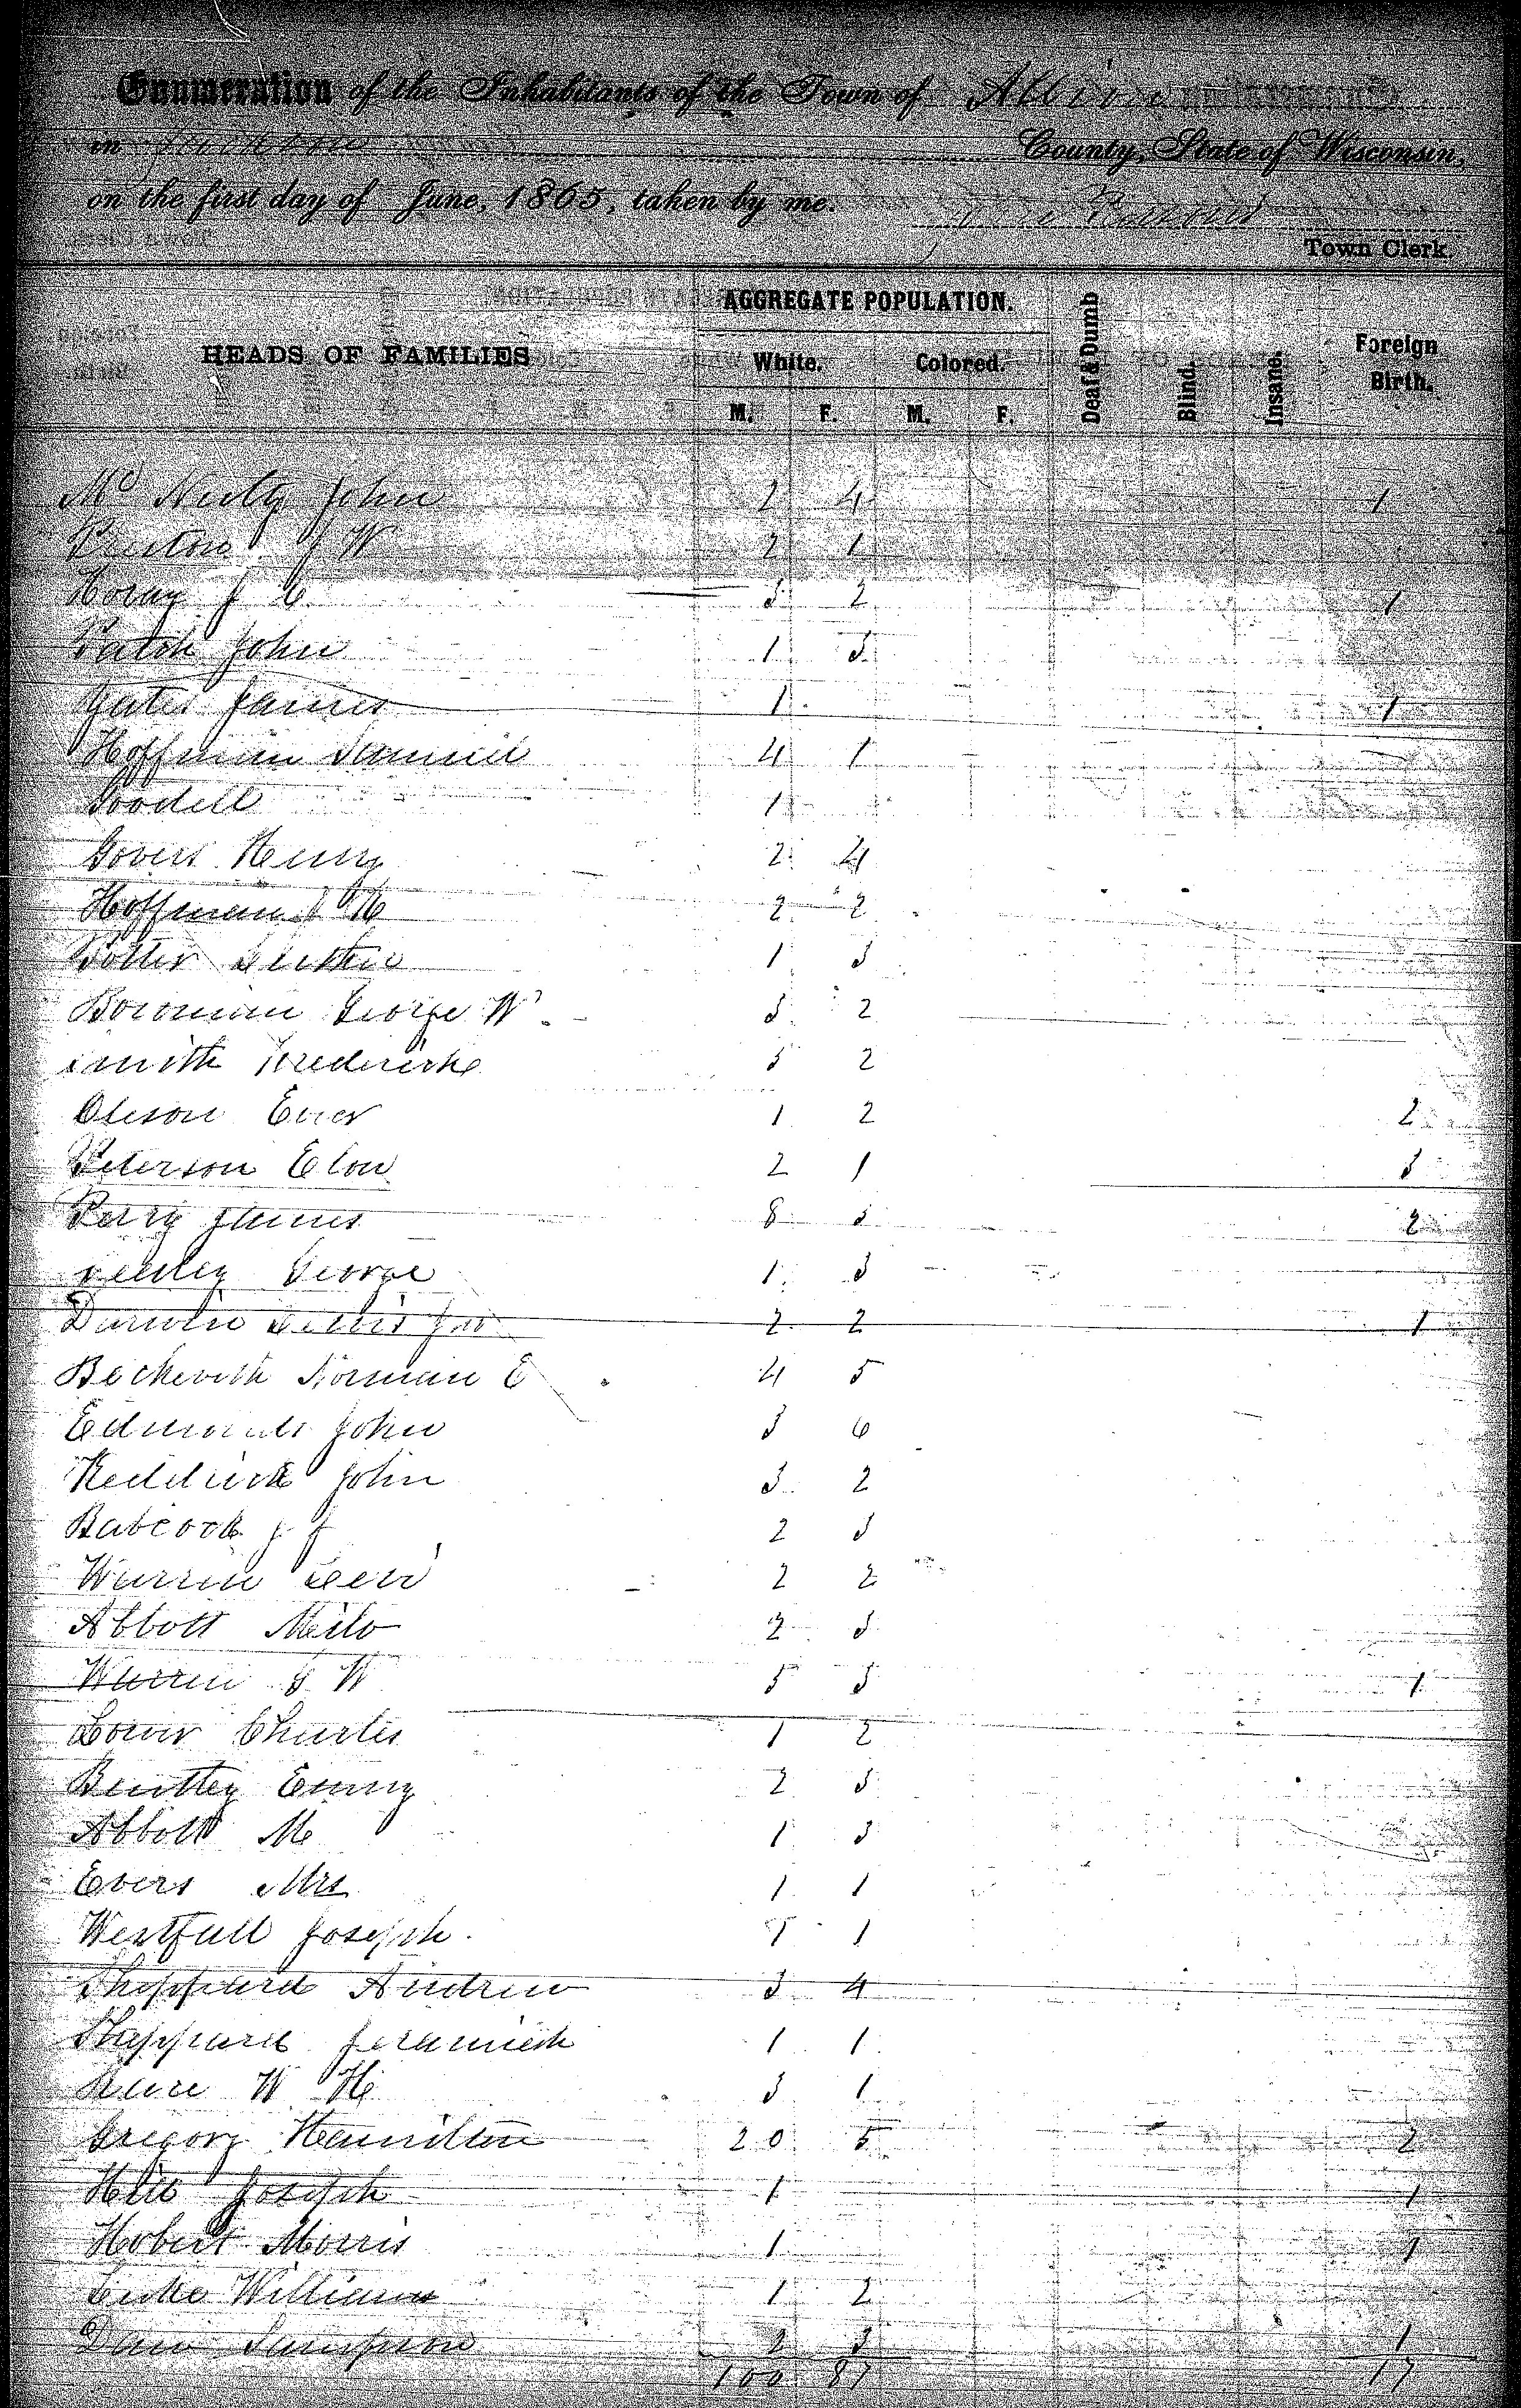 Enumeration of the Inhabitants of the Town of Albion
in Jackson County, State of Wisconsin,
on the first day of June, 1865, taken by me.
Town Clerk.
HEADS OF FAMILIES AGGREGATE POPULATION. Deaf & Dumb Blind. Insane. Foreign Birth.
White. Colored.
M. F. M. F.
Mc Nulty John 2 4 1
J W 2 1
J C 3 2 1
Patch John 1 3
Yates James 1 1
Hoffman Samuel 4 1
Goodell 1
Govers Henry 2 4
Hoffman J H 2 2
Potter 1 3
Bowman George W 3 2
Smith Frederick 3 2
Oleson Ever 1 2 2
Peterson Elou 2 1 3
Perry James 8 3 2
George 1 3
2 2 1
Beckwith Norman E 4 5
Edmonds John 3 6
John 3 2
Babcock J J 2 3
Warren Levi 2 2
Abbott Milo 2 3
Warren G W 5 3 1
Lower Charles 1 2
Bentley Emry 2 3
Abbott M 1 3
Evers Mrs 1 1
Westfall Joseph 1 1
Sheppard Andrew 3 4
Sheppard Jeramiah 1 1
W H 3 1
Gregory Hamilton 20 5 2
Hill Joseph 1 1
Hobert Morris 1 1
William 1 2
Sampson 2 3 1
100 87 17